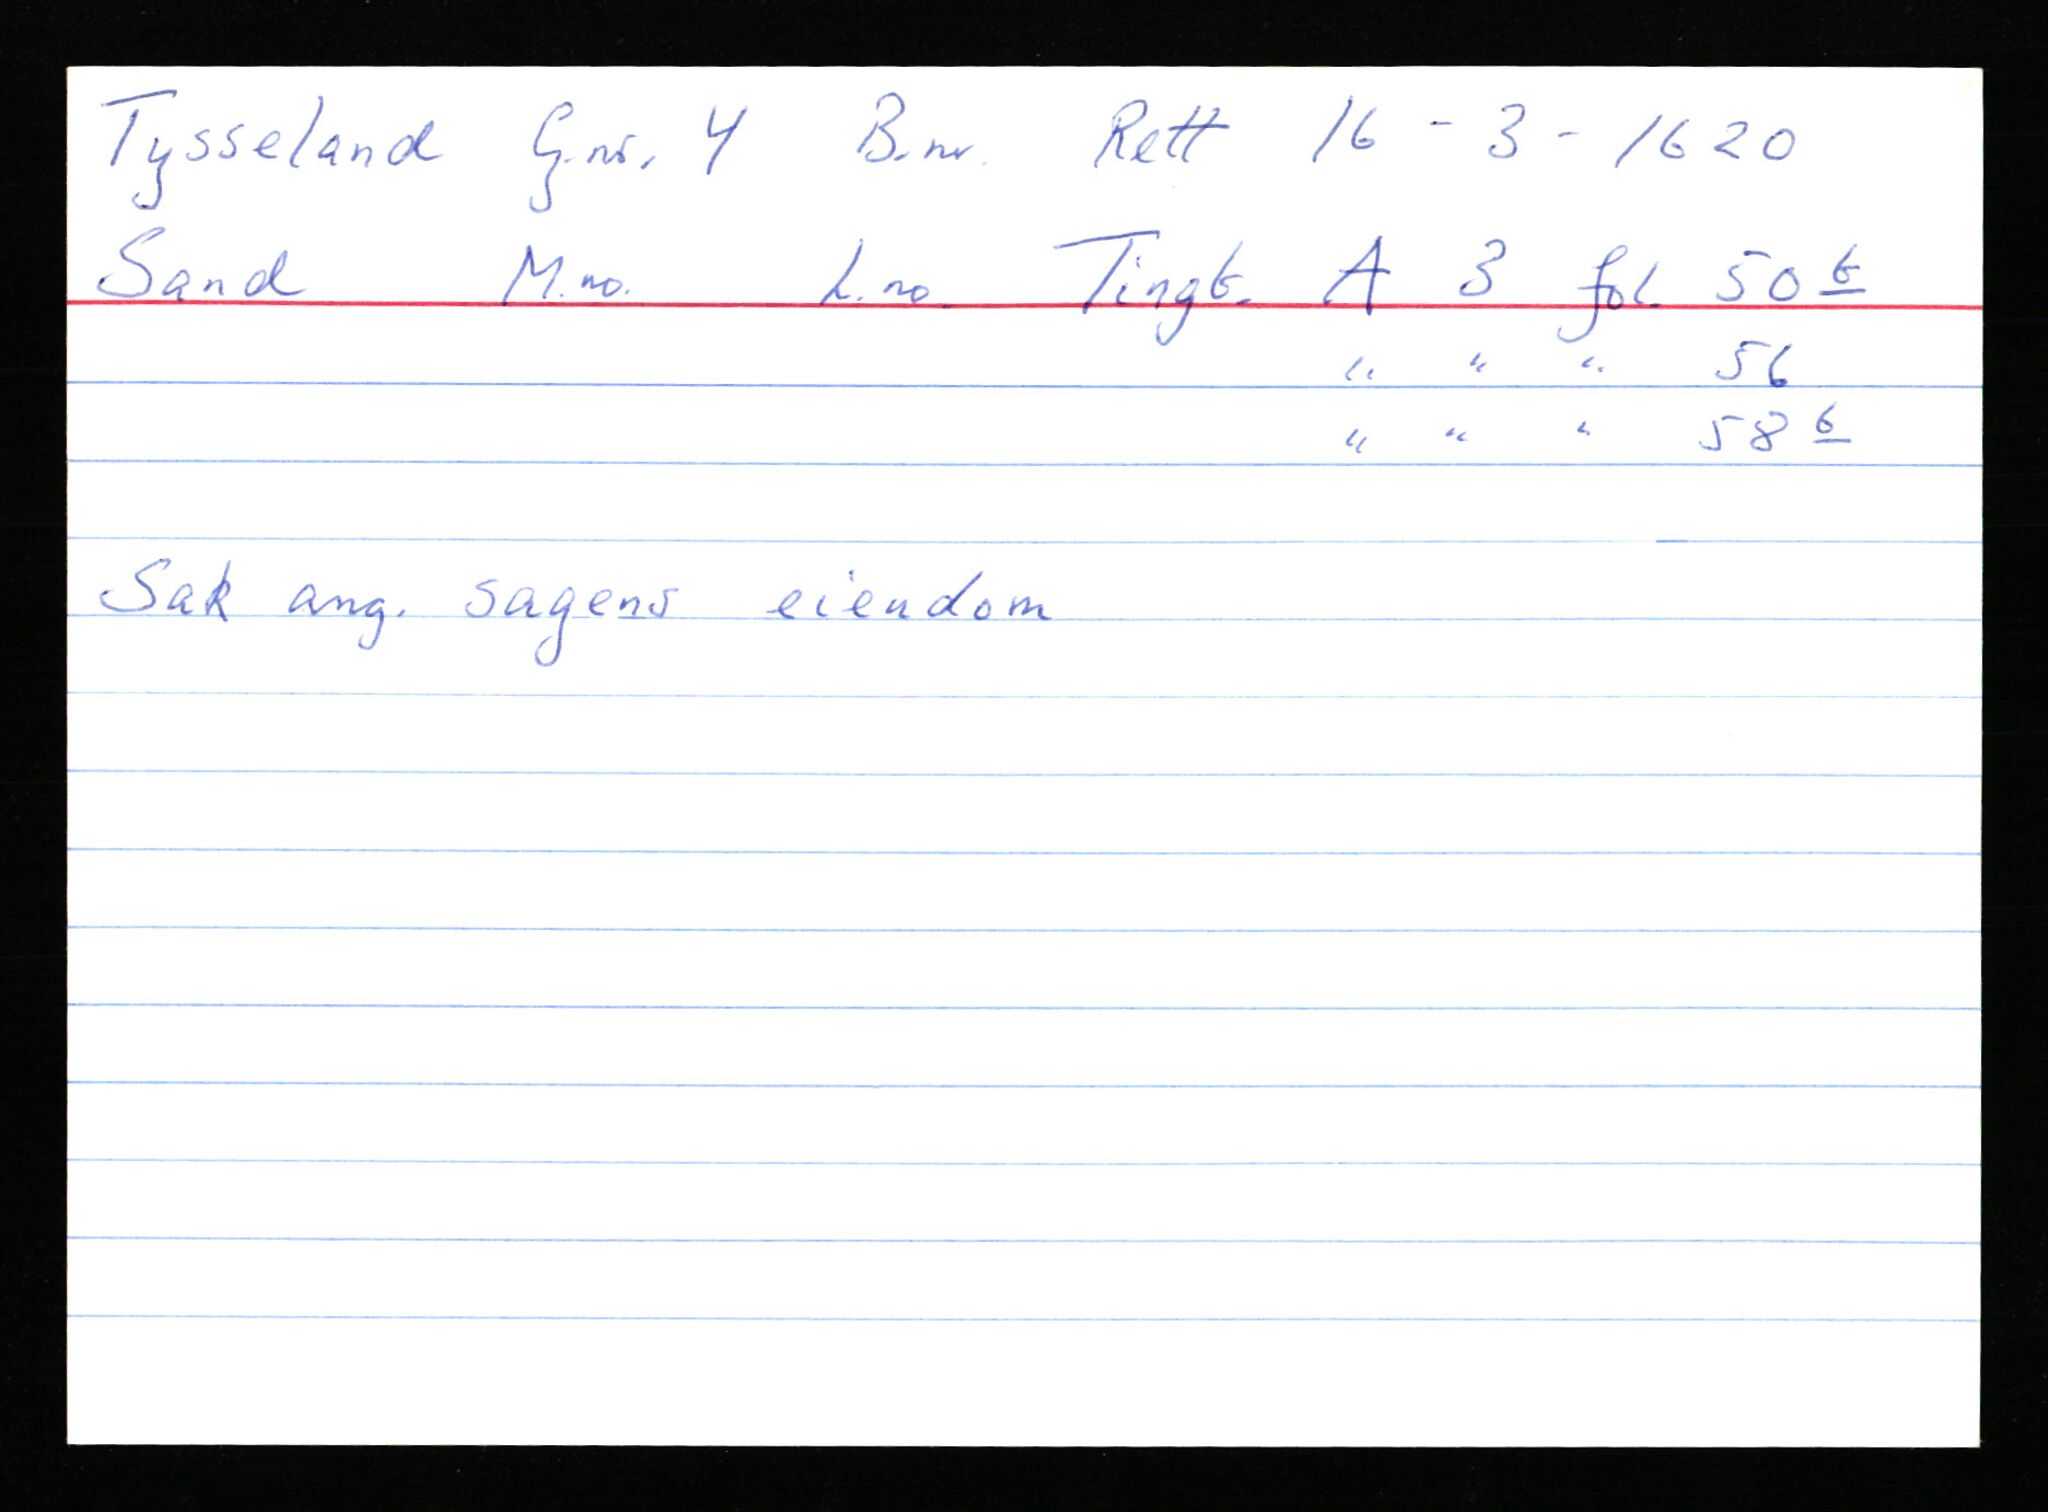 Tysseland G.nr. 4 B.nr. Rett 16 - 3 - 1620
Sand M.no. L.no. Tingb. A 3 fol. 50 b
" " " 56
" " " 58 b
Sak ang. sagens eiendom